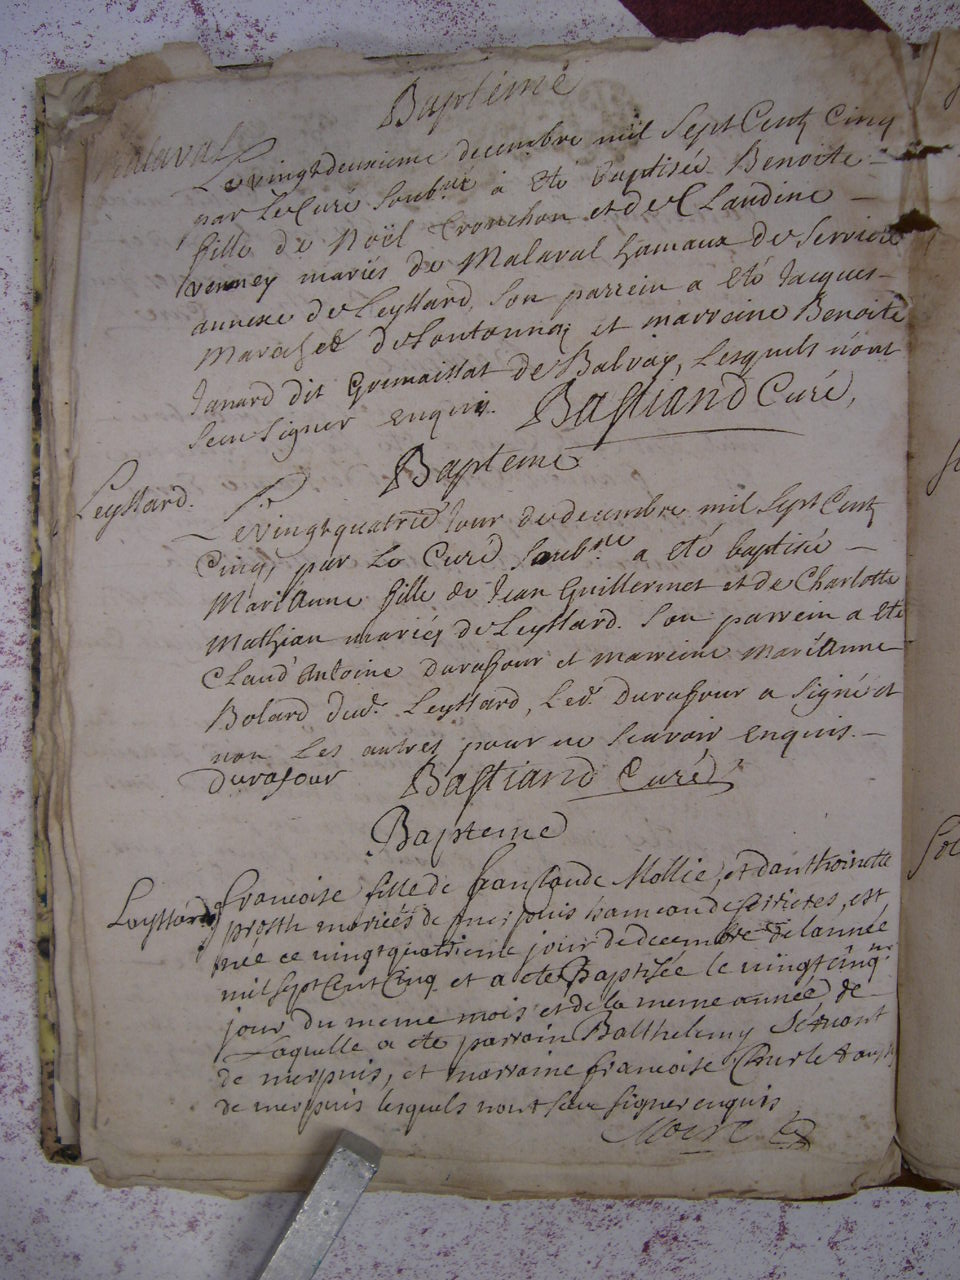 Bapteme
Malaval
Le vingtdeuxieme decembre mil sept Cent Cinq
par Le Curé Soub.né a eté baptisée Benoite
fille de Noël Tronchon et de Claudine
venney mariés de Malaval hameaux de Serriere
annexe de Leyssard, Son parrein a eté Jacques
de et marreine Benoite
Janard dit de Balvay, Lesquels n'ont
Sceu Signer enquis. Bastiand Curé,
Bapteme
Leyssard.
Le vingtquatrie Jour de decembre mil Sept Cent
Cinq, par Le Curé Soub.né a eté baptisée
Mari'Anne fille de Jean Guillermet et de Charlotte
Mathian mariés de Leyssard. Son parrein a eté
Claud'Antoine durafour et marreine Mari'Anne
Bolard dud. Leyssard, Led. durafour a Signé et
non Les autres pour ne Scavoir enquis.
durafour Bastiand Curé
Bapteme
Leyssard
francoise fille de françois Mollie, et danthoinette
mariés de hameau de serrietes, est
née ce vingtquatrieme jour de decembre de lannée
mil sept Cent Cinq et a eté Baptisée le vingtcinq.me
jour du meme mois et de la meme année, de
Laquelle a eté parrain Balthelemy
de merpuis, et marraine francoise
de merpuis lesquels nont sceu signer enquis